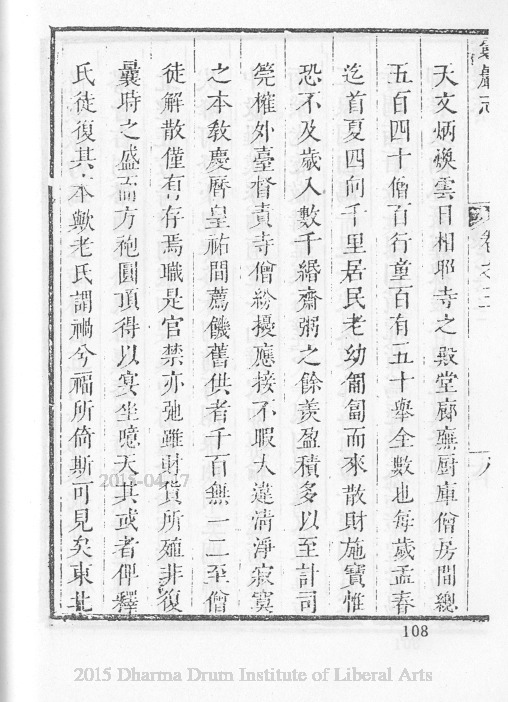 天文炳煥雲日相耶寺之殿堂廊廡厨庫僧房間總
五百四十僧百行童百有五十舉全數也每歲孟春
迄首夏四向千里居民老幼匍匐而來散財施寶惟
恐不及歲入數千緡齋粥之餘羨盈積多以至計司
筦榷外臺督責寺僧紛擾應接不暇大違清淨寂寞
之本敎慶曆皇祐間薦饑舊供者千百無一二至僧
徒解散僅有存焉職是官禁亦弛雖財貨所殖非復
曩時之盛而方袍圓頂得以宴坐噫天其或者俾釋
氏徒復其本歟老氏謂禍兮福所倚斯可見矣東北
卷之三
八
108
2015-04-17
2015 Dharma Drum Institute of Liberal Arts